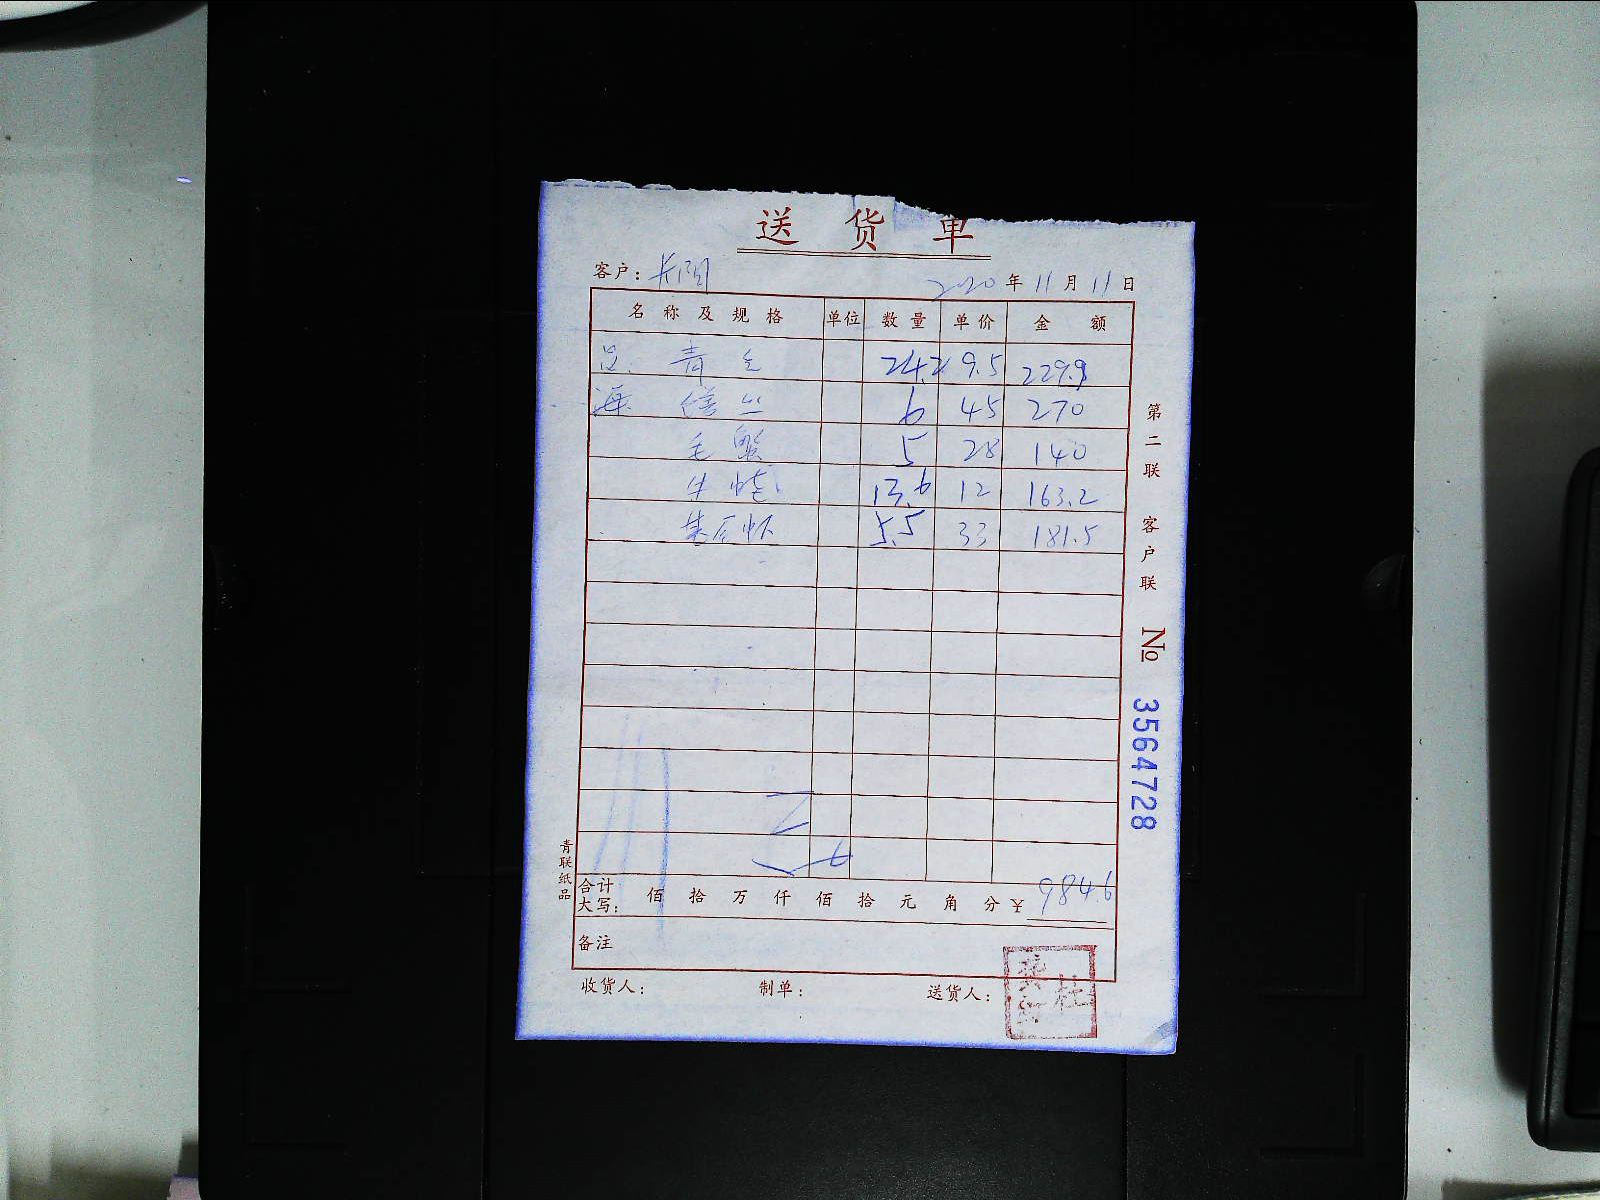 送货单
客户： 2020年11月11日
名称及规格 单位 数量 单价 金额
青 24.2 9.5 229.9
6 45 270
毛蟹 5 28 140
牛蛙 13.6 12 163.2
5.5 33 181.5
合计大写： 佰 拾 万 仟 佰 拾 元 角 分 ¥ 984.6
备注
收货人： 制单： 送货人：
第二联 客户联 № 3564728
青联纸品